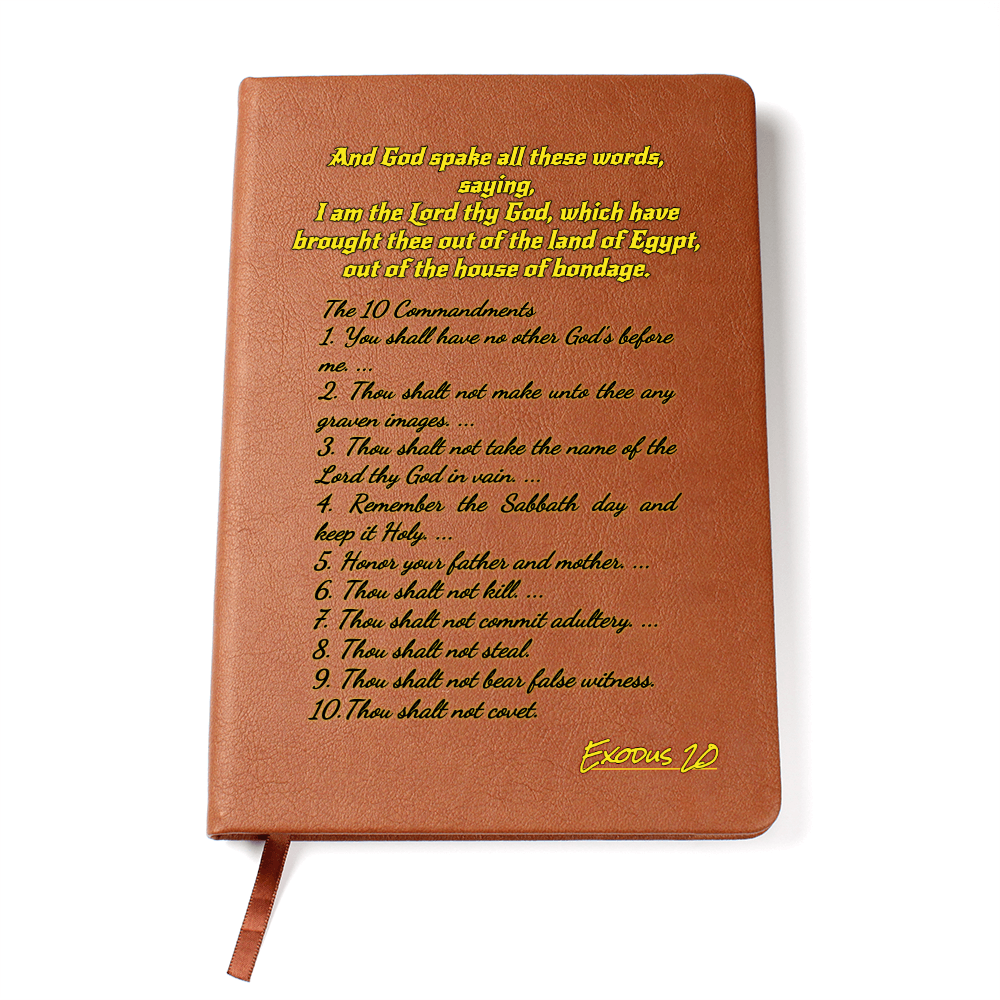 And God spake all these words,
saying,
I am the Lord thy God, which have
brought thee out of the land of Egypt,
out of the house of bondage.
The 10 Commandments
1. You shall have no other God's before
me. ...
2. Thou shalt not make unto thee any
graven images. ...
3. Thou shalt not take the name of the
Lord thy God in vain. ...
4. Remember the Sabbath day and
keep it Holy. ...
5. Honor your father and mother. ...
6. Thou shalt not kill. ...
7. Thou shalt not commit adultery. ...
8. Thou shalt not steal.
9. Thou shalt not bear false witness.
10.Thou shalt not covet.
Exodus 20